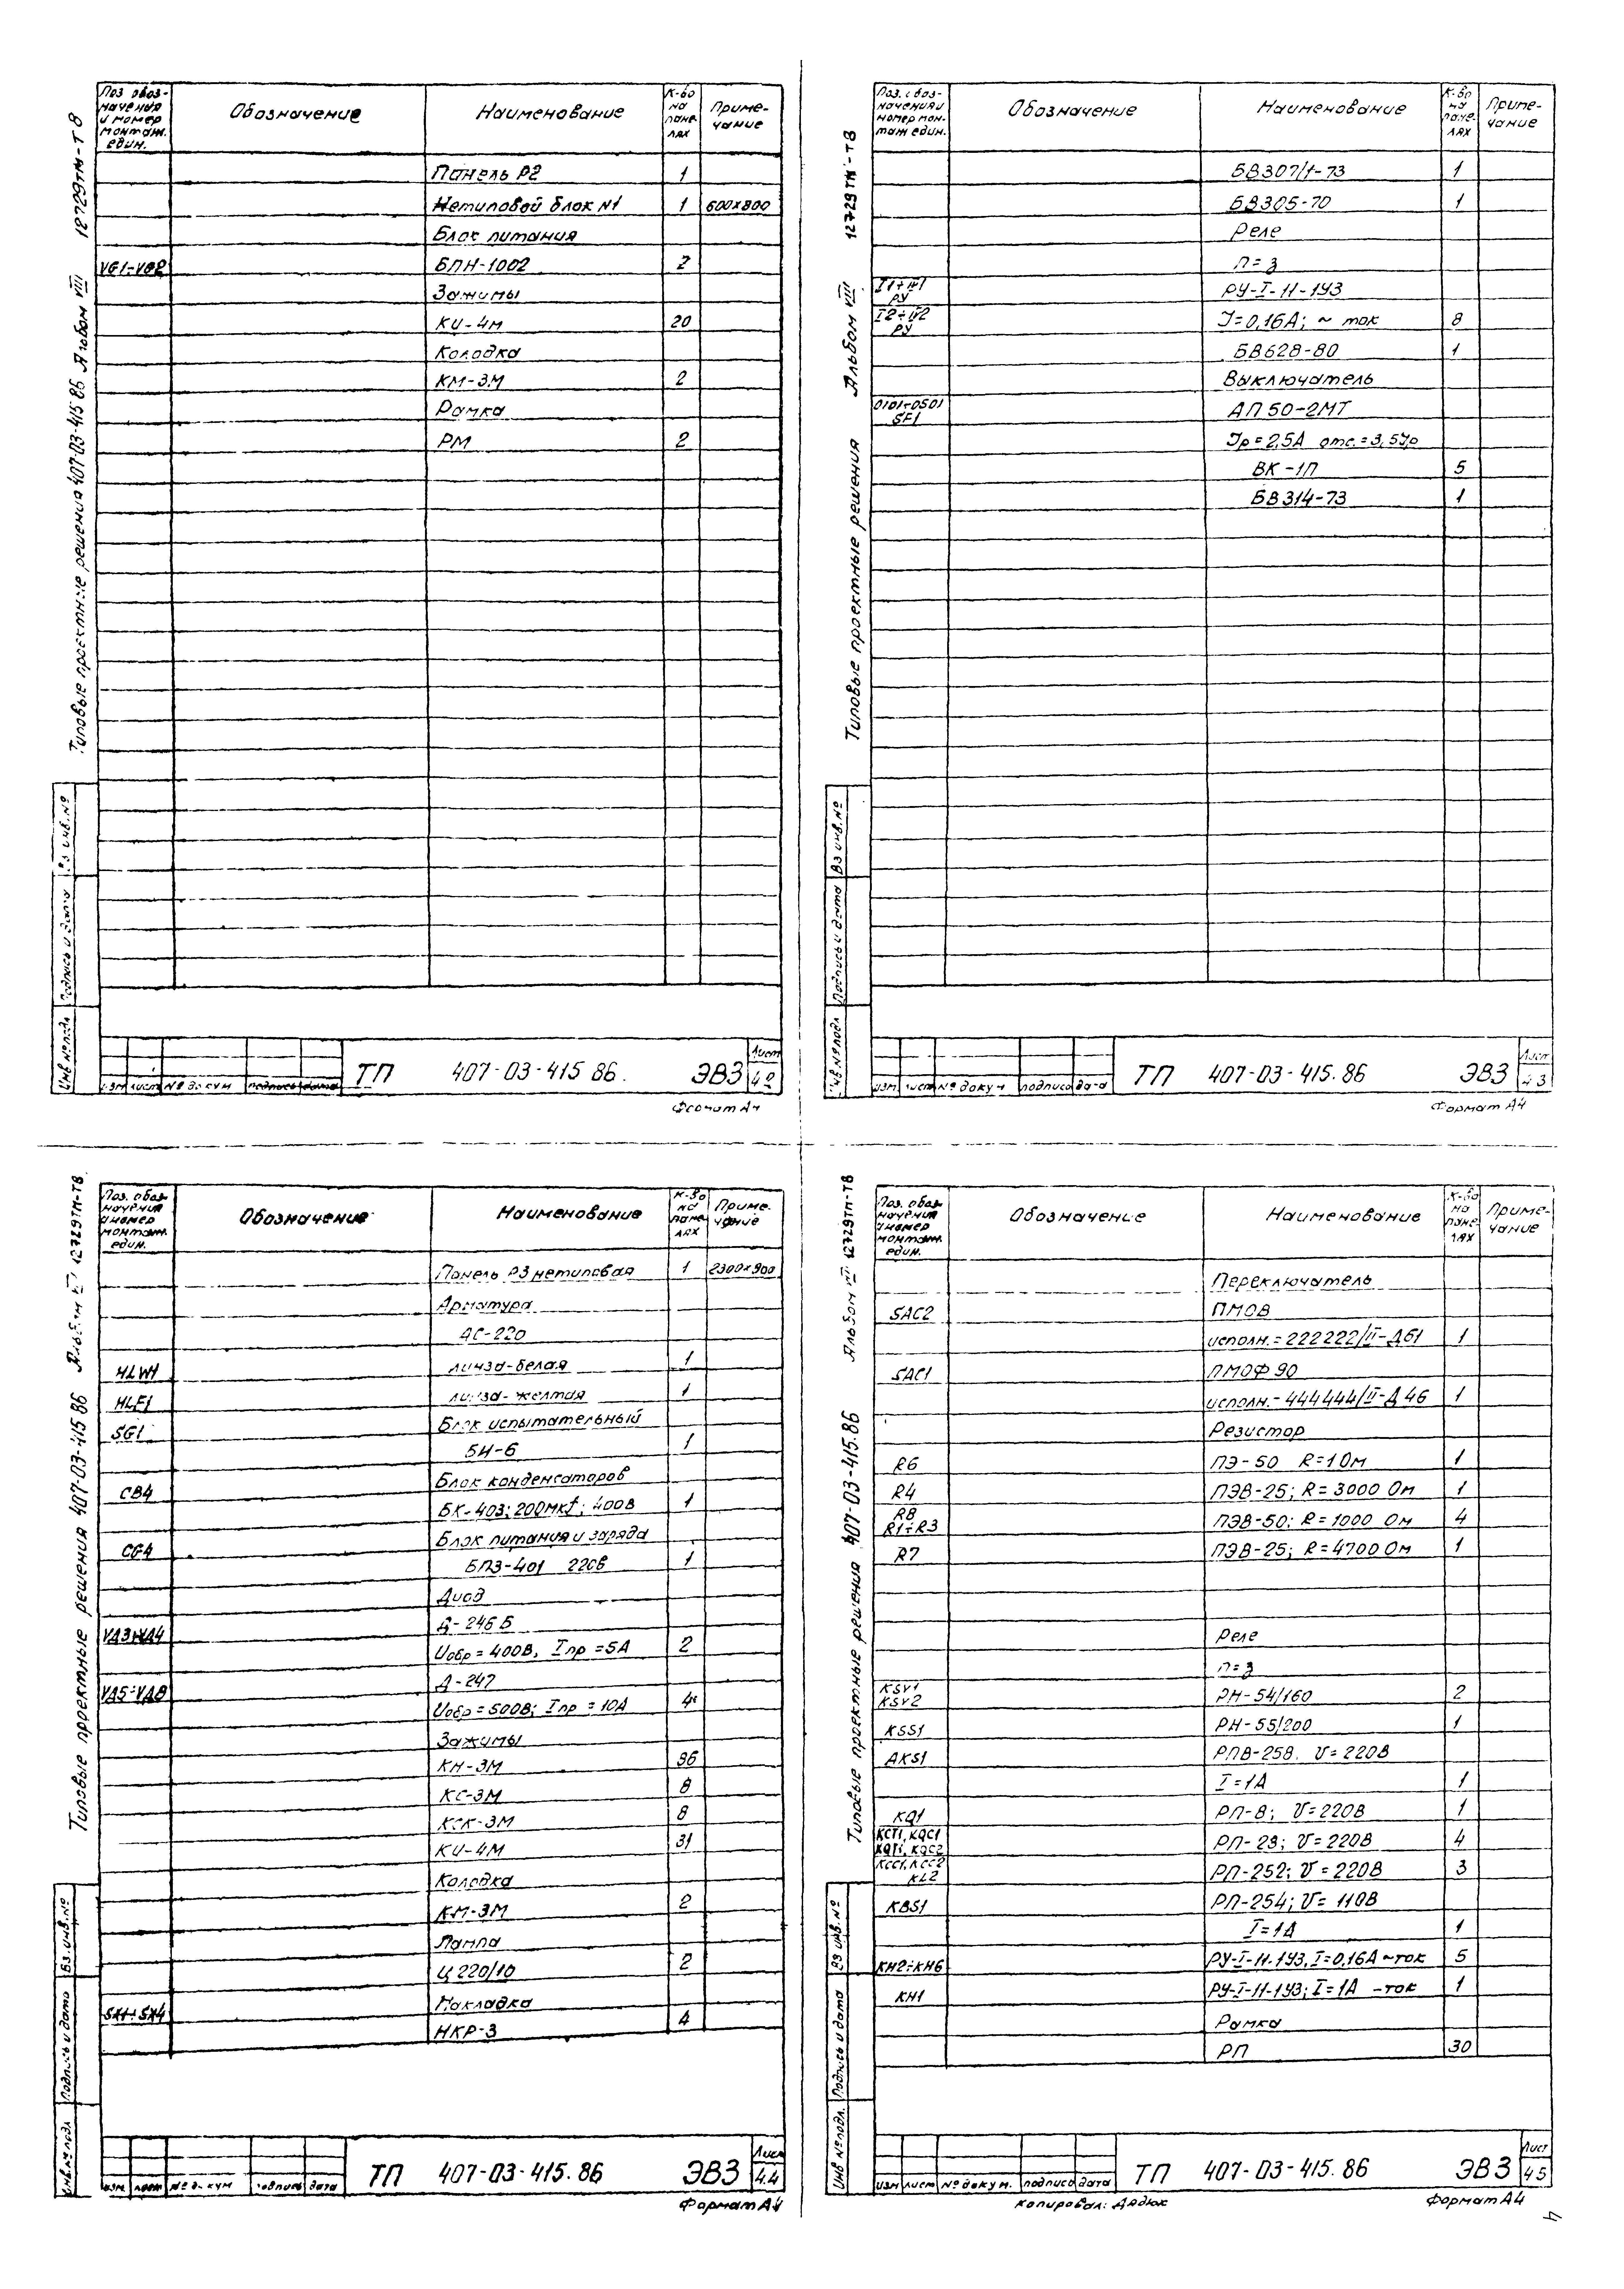 12729тм-т8
Альбом VIII
Типовые проектные решения 407-03-415 86
Поз обоз-
начения
и номер
монтаж.
един.
Обозначение
Наименование
К-во
на
пане-
лях
Приме-
чание
Панель Р2 1
Нетиповой блок №1 1 600х800
Блок питания
VG1-VG2 БПН-1002 2
Зажимы
КИ-4М 20
Колодка
КМ-3М 2
Рамка
РМ 2
Вз инв.№
Подпись и дата
Инв № подл
Изм Лист № докум подпись дата
ТП 407-03-415 86. ЭВ3
Лист
42
Формат А4
12729тм-т8
Альбом VIII
Типовые проектные решения
Поз. обоз-
начения и
номер мон-
таж един.
Обозначение
Наименование
К-во
на
пане-
лях
Приме-
чание
БВ307/1-73 1
БВ305-70 1
Реле
п=з
I1÷IV1
РУ
РУ-I-11-1У3
I2÷IV2
РУ
J=0,16А; ~ ток 8
БВ628-80 1
Выключатель
0101÷0501
SF1
АП50-2МТ
Jр=2,5А отс.=3,5Jр
ВК-1П 5
БВ314-73 1
Вз инв.№
Подпись и дата
Инв № подл
Изм Лист № докум подпись дата
ТП 407-03-415.86 ЭВ3
Лист
43
Формат А4
12729тм-т8
Альбом
Типовые проектные решения 407-03-415 86
Поз. обоз-
начения
и номер
монтаж.
един.
Обозначение
Наименование
К-во
на
пане-
лях
Приме-
чание
Панель Р3 нетиповая 1 2300х900
Арматура
АС-220
HLW1 линза-белая 1
HLE1 линза-желтая 1
SG1 Блок испытательный
БИ-6 1
Блок конденсаторов
CB4 БК-403; 200мкf; 400В 1
Блок питания и заряда
CG4 БПЗ-401 220В 1
Диод
VД3÷VД4 Д-246Б
Uобр=400В, Iпр=5А 2
VД5÷VД8 Д-247
Uобр=500В; Iпр=10А 4
Зажимы
КН-3М 96
КС-3М 8
КСК-3М 8
КИ-4М 31
Колодка
КМ-3М 2
Лампа
Ц 220/10 2
SX1÷SX4 Накладка
НКР-3 4
Вз. инв.№
Подпись и дата
Инв № подл
Изм. Лист № докум подпись дата
ТП 407-03-415.86 ЭВ3
Лист
44
Формат А4
12729тм-т8
Альбом
Типовые проектные решения 407-03-415.86
Поз. обоз-
начения
и номер
монтаж
един.
Обозначение
Наименование
К-во
на
пане-
лях
Приме-
чание
Переключатель
SAC2 ПМОВ
исполн.=222222/II-Д61 1
SAC1 ПМОФ90
исполн.-444444/II-Д46 1
Резистор
R6 ПЭ-50 R=1Ом 1
R4 ПЭВ-25; R=3000 Ом 1
R8
R1÷R3
ПЭВ-50; R=1000 Ом 4
R7 ПЭВ-25; R=4700 Ом 1
Реле
п=з
KSV1
KSV2
РН-54/160 2
KSS1 РН-55/200 1
AKS1 РПВ-258. U=220В
I=1А 1
KQ1 РП-8; U=220В 1
KCT1, KQC1
KQT1, KQC2
РП-23; U=220В 4
KCC1, KCC2
KL2
РП-252; U=220В 3
KBS1 РП-254; U=110В
I=1А 1
KH2÷KH6 РУ-I-11-1У3, I=0,16А ~ток 5
KH1 РУ-I-11-1У3; I=1А -ток 1
Рамка
РП 30
Вз инв.№
Подпись и дата
Инв № подл.
Изм Лист № докум. подпись дата
ТП 407-03-415.86 ЭВ3
Лист
45
Копировал: Дядюк
Формат А4
4